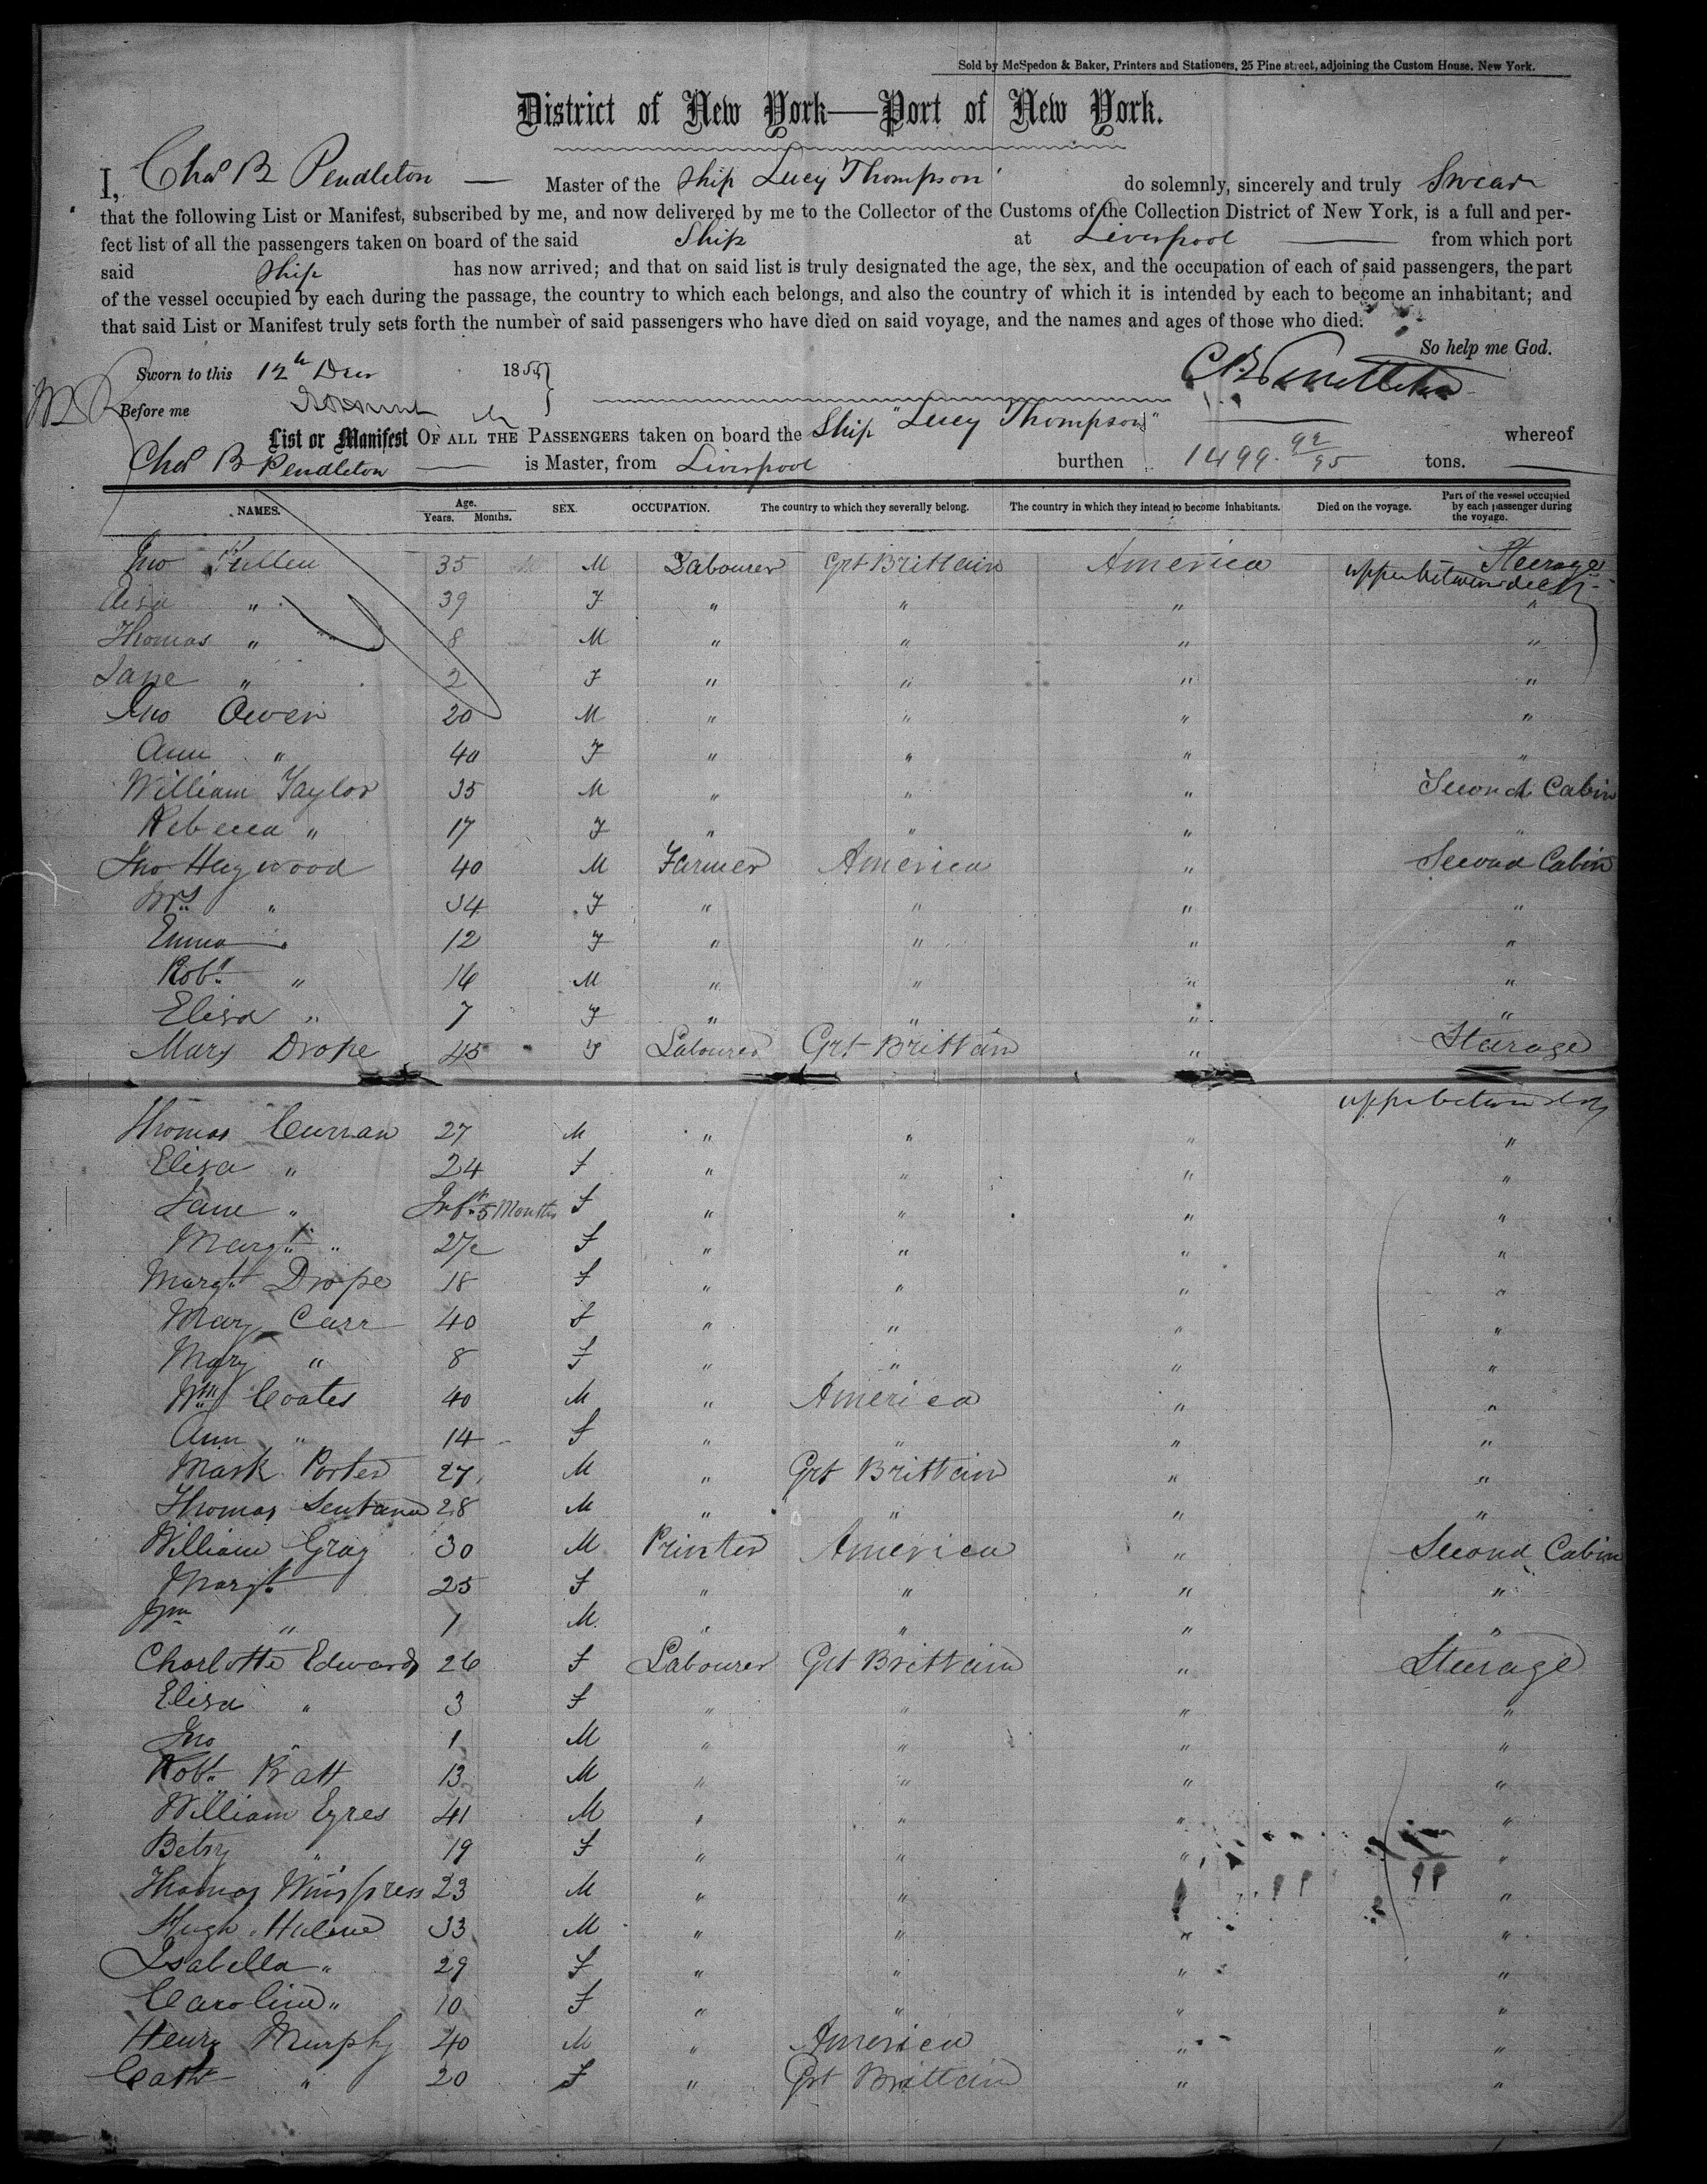 Sold by McSpedon & Baker, Printers and Stationers, 25 Pine street, adjoining the Custom House, New York.
District of New York—Port of New York.
I, Chas B Pendleton — Master of the Ship Lucy Thompson do solemnly, sincerely and truly Swear
that the following List or Manifest, subscribed by me, and now delivered by me to the Collector of the Customs of the Collection District of New York, is a full and per-
fect list of all the passengers taken on board of the said Ship at Liverpool — from which port
said Ship has now arrived; and that on said list is truly designated the age, the sex, and the occupation of each of said passengers, the part
of the vessel occupied by each during the passage, the country to which each belongs, and also the country of which it is intended by each to become an inhabitant; and
that said List or Manifest truly sets forth the number of said passengers who have died on said voyage, and the names and ages of those who died.
So help me God.
Sworn to this 12th Decr 1855
C B Pendleton
Before me
List or Manifest OF ALL THE PASSENGERS taken on board the Ship "Lucy Thompson" whereof
Chas B Pendleton — is Master, from Liverpool burthen 1499 92/95 tons.
NAMES. Age. Years. Months. SEX. OCCUPATION. The country to which they severally belong. The country in which they intend to become inhabitants. Died on the voyage. Part of the vessel occupied by each passenger during the voyage.
Jno Pullen 35 M Labourer Grt Brittain America Steerage
upper between deck
" 39 F " " " "
Thomas " 8 M " " " "
Jane " 2 F " " " "
Jno Owen 20 M " " " "
Ann " 40 F " " " "
William Taylor 35 M " " " Second Cabin
Rebecca " 17 F " " " "
Jno Haywood 40 M Farmer America " Second Cabin
Mrs " 34 F " " " "
Emma " 12 F " " " "
Robt " 16 M " " " "
Elisa " 7 F " " " "
Mary Drope 45 F Labourer Grt Brittain " Steerage
upper between deck
Thomas Curran 27 M " " " "
Elisa " 24 F " " " "
Jane " Inft 5 Months F " " " "
Margt " 2 F " " " "
Margt Drope 18 F " " " "
Mary Carr 40 F " " " "
Mary " 8 F " " " "
Wm Coates 40 M " America " "
Ann " 14 F " " " "
Mark Porter 27 M " Grt Brittain " "
Thomas 28 M " " " "
William Gray 30 M Printer America " Second Cabin
Margt 25 F " " " "
Wm " 1 M " " " "
Charlotte Edwards 26 F Labourer Grt Brittain " Steerage
Elisa " 3 F " " " "
Jno " 1 M " " " "
Robt Pratt 13 M " " " "
William Eyres 41 M " " " "
Betsy " 19 F " " " "
Thomas Winspress 23 M " " " "
Hugh Hulme 33 M " " " "
Isabella " 29 F " " " "
Caroline " 10 F " " " "
Henry Murphy 40 M " America " "
Cath " 20 F " Grt Brittain " "